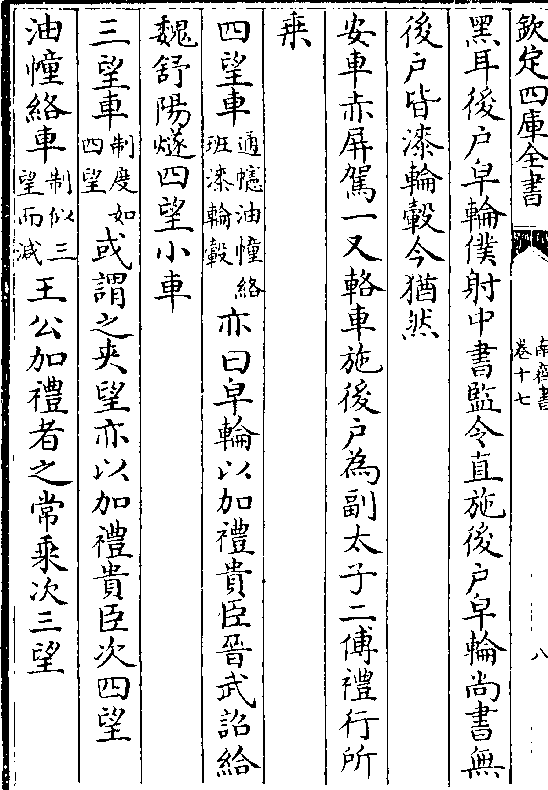 欽定四庫全書
南齊書
卷十七
八
黑耳後戶皁輪僕射中書監令直施後戶皁輪尚書無
後戶皆漆輪轂今猶然
安車赤屏駕一又軺車施後戶為副太子二傅禮行所
乗
四望車通幰油幢絡班漆輪轂亦曰皁輪以加禮貴臣晉武詔給
魏舒陽燧四望小車
三望車制度如四望或謂之夾望亦以加禮貴臣次四望
油幢絡車制似三望而減王公加禮者之常乗次三望